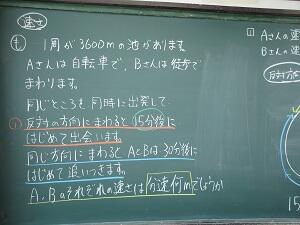 速さ
も 1周が3600mの池があります。
Aさんは自転車で、Bさんは徒歩で
まわります。
同じところを同時に出発して、
① 反対の方向にまわると15分後に
はじめて出会います。
同じ方向にまわるとAとBは30分後に
はじめて追いつきます。
A、Bのそれぞれの速さは分速何mでしょうか
① Aさんの速
Bさんの速
反対方
15